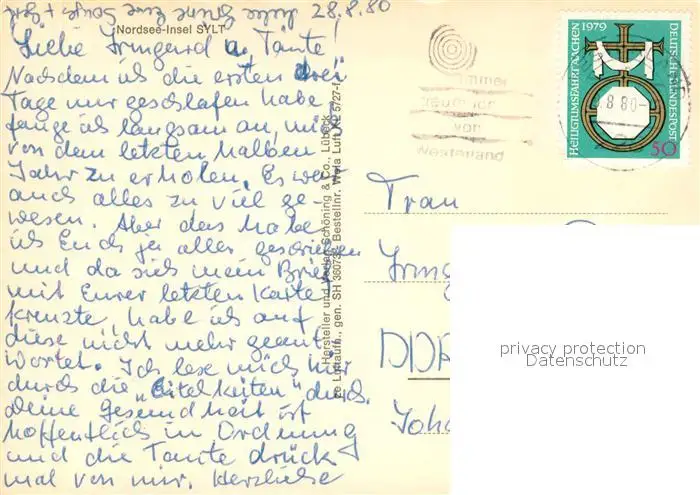 28.8.80
Nordsee-Insel SYLT
Liebe Irmgard u. Tante!
Nachdem ich die ersten drei
Tage nur geschlafen habe
fange ich langsam an, mich
von dem letzten halben
Jahr zu erholen. Es war
auch alles zu viel ge-
wesen. Aber das habe
ich Euch ja alles geschrieben
und da sich mein Brief
mit Eurer letzten Karte
kreuzte, habe ich auf
diese nicht mehr geant
wortet. Ich lese mich hier
durch die „Eitelkeiten" durch.
Deine Gesundheit ist
hoffentlich in Ordnung
und die Tante drück
mal von mir. Herzliche
Hersteller und Verlag Schöning & Co., Lübeck
Luftaufn., gen.: SH
Bestellnr. Wela Luft
HEILIGTUMSFAHRT AACHEN 1979
DEUTSCHE BUNDESPOST
50
8.80
von
Westerland
Frau
DDR
privacy protection
Datenschutz